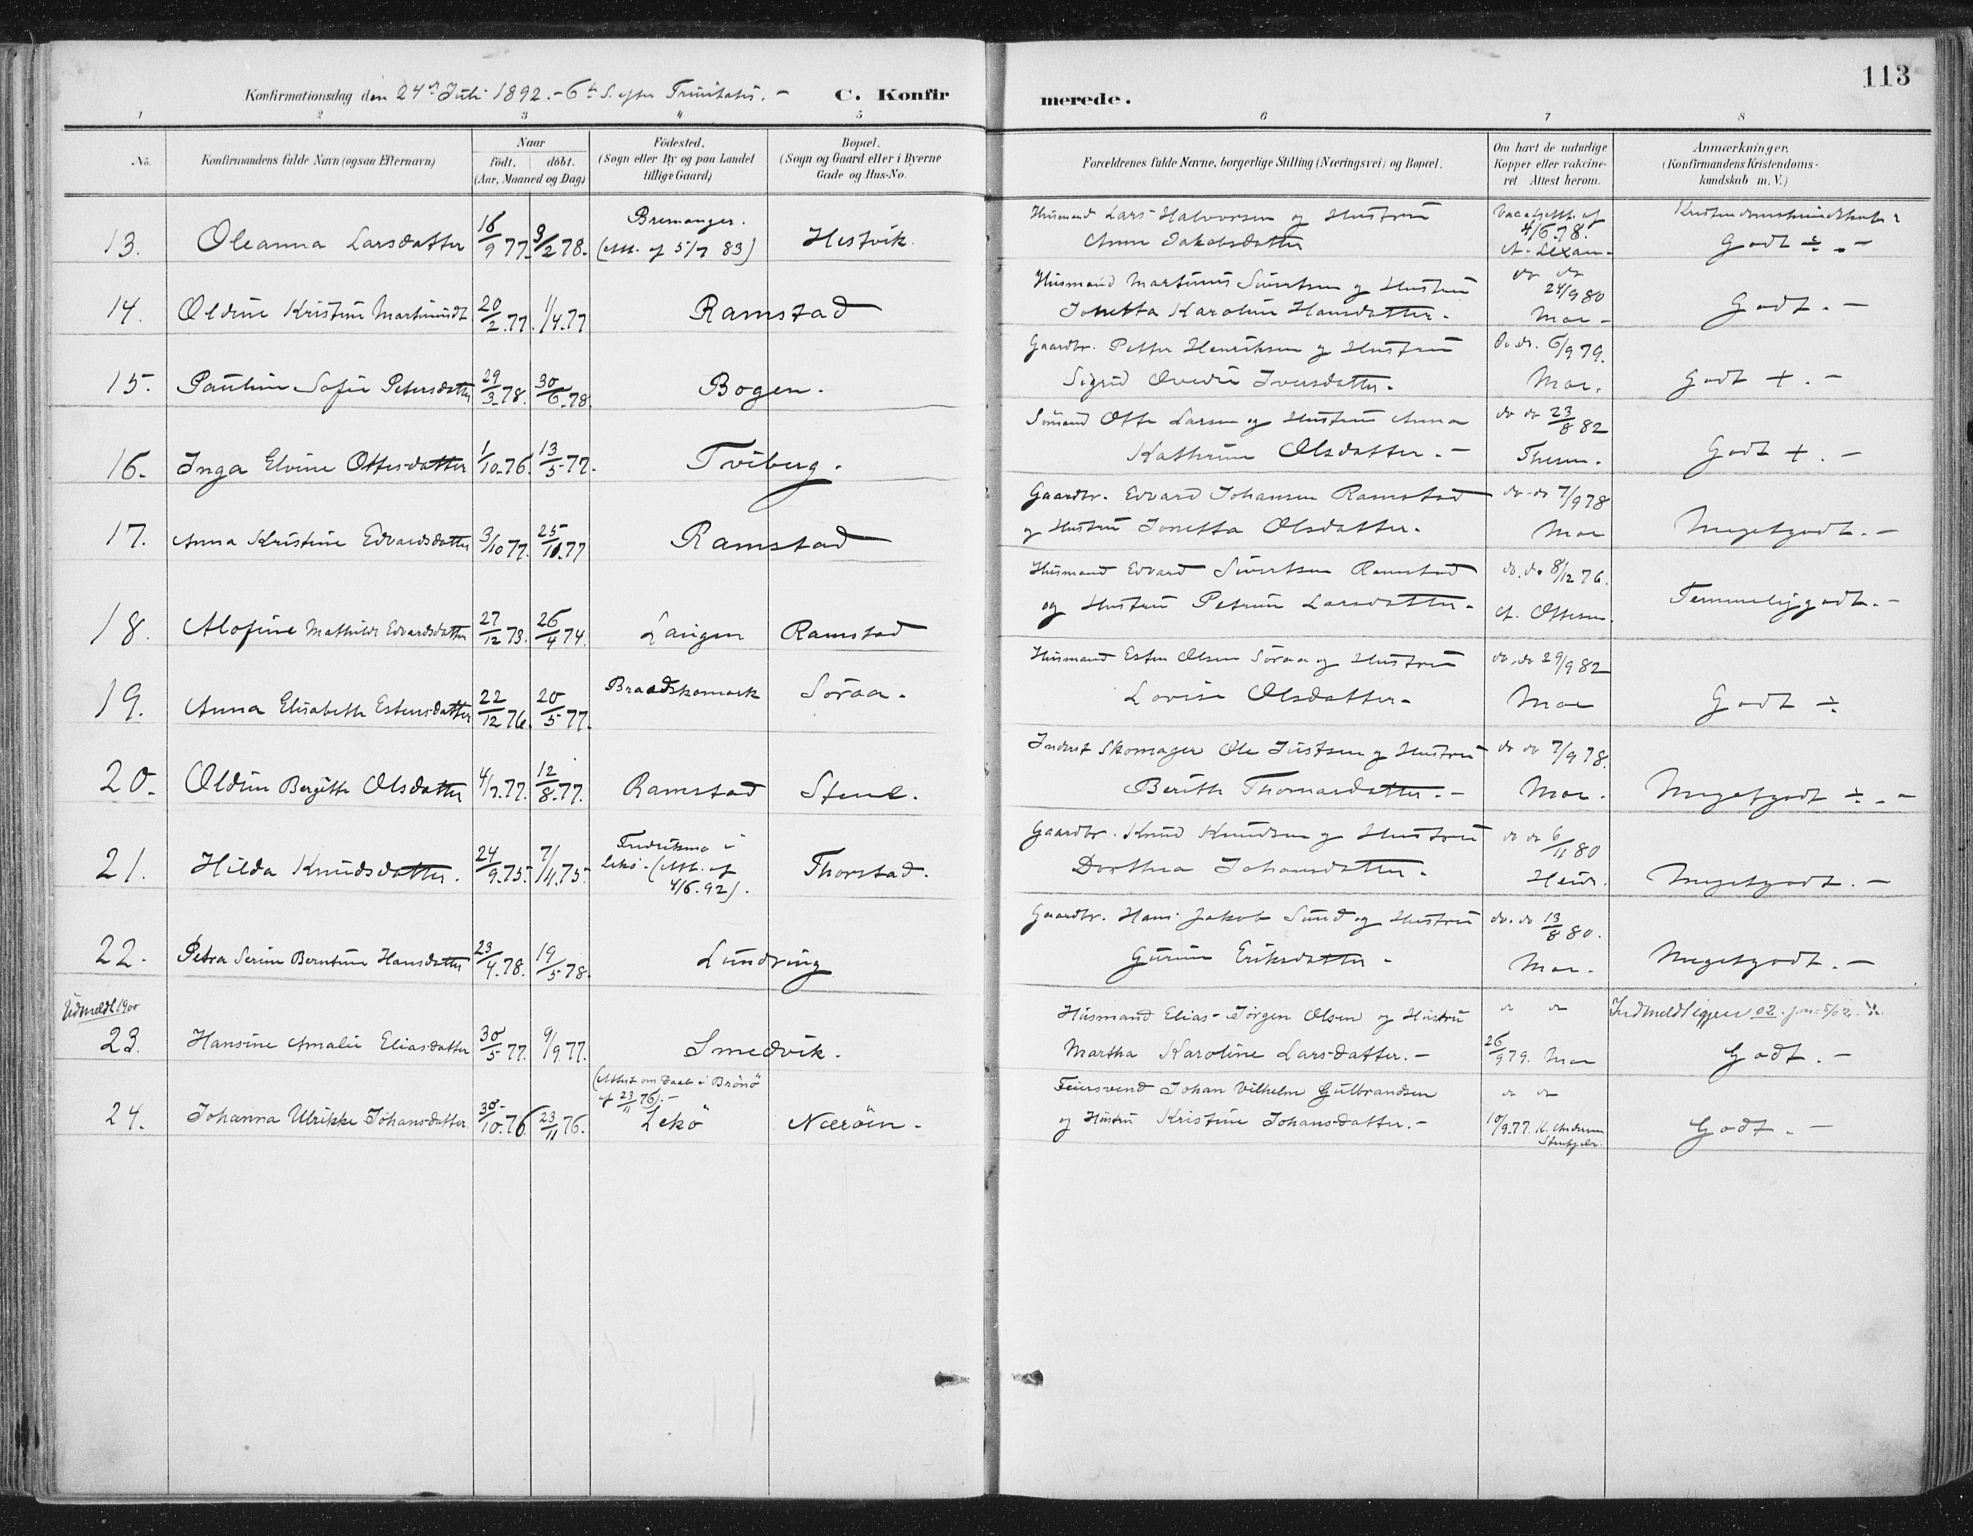 113
Konfirmationsdag den 24de Juli 1892. - 6te S. efter Trinitatis. -
C. Konfirmerede.
1 2 3 4 5 6 7 8
No.
Konfirmandens fulde Navn (ogsaa Efternavn)
Naar
födt. döbt.
(Aar, Maaned og Dag)
Födested.
(Sogn eller By og paa Landet
tillige Gaard)
Bopæl.
(Sogn og Gaard eller i Byerne
Gade og Hus-No.
Forældrenes fulde Navne, borgerlige Stilling (Næringsvei) og Bopæl.
Om havt de naturlige
Kopper eller vakcine-
ret. Attest herom.
Anmærkninger,
(Konfirmandens Kristendoms-
kundskab m. V.)
13. Oleanna Larsdatter 16/9 77. 3/2 78. Bremanger. (Att. af 5/7 83) Hestvik.
Husmand Lars Halvorsen og Hustru
Anne Jakobsdatter
4/6 78.
Godt ÷ . -
14. Oldine Kristine Martinusdt 20/2.77. 1/4.77 Ramstad
Husmand Martinus Sivertsen og Hustru
Jonetta Karoline Hansdatter. -
do do 24/9 80
Moe -
Godt. -
15. Pauline Sofie Petersdatter 29/3.78. 30/6.78. Bogen.
Gaardbr. Petter Henriksen og Hustru
Sigrid Ovedie Iversdatter. -
do. do. 6/9 79.
Moe.
Godt +. -
16. Inga Elvine Ottesdatter 1/10.76. 13/5 77. Tviberg.
Sömand Otte Larsen og Hustru Anna
Kathrine Olsdatter. -
do do 23/8 82
Godt +. -
17. Anna Kristine Edvardsdatter 3/10 77. 25/11.77 Ramstad
Gaardbr. Edvard Johansen Ramstad
og Hustru Jonetta Olsdatter. -
do do 7/9 78
Moe
Megetgodt. -
18. Alofine Mathilde Edvardsdatter 27/12 73. 26/4 74. Langen Ramstad
Husmand Edvard Sivertsen Ramstad
og Hustru Petrine Larsdatter. -
do. do 8/12 76.
A. Ottesen.
Temmeliggodt. -
19. Anna Elisabeth Estensdatter 22/12 76. 20/5 77. Braadskomark Söraa.
Husmand Esten Olsen Söraa og Hustru
Lovise Olsdatter. -
do. do 29/9 82
Moe
Godt ÷
20. Oldine Bergitte Olsdatter 4/7.77. 12/8.77. Ramstad Stene.
Inderst Skomager Ole Justsen og Hustru
Berith Thomasdatter. -
do do 7/9 78.
Moe.
Megetgodt ÷ . -
21. Hilda Knudsdatter. 24/9.75. 7/4.75. Fredriksmo i Lekö. (Att. af 4/6.92). Thorstad.
Gaardbr. Knud Knudsen og Hustru
Dorthea Johansdatter. -
do do 6/11 80
Megetgodt. -
22. Petra Serine Berntine Hansdatter 23/4.78. 19/5 78. Lundring
Gaardbr. Hans Jakob Sund og Hustru
Gurine Eriksdatter -
do. do 13/8 80.
Moe.
Megetgodt. -
Udmeldt 1900
23. Hansine Amalie Eliasdatter 30/5 77. 9/9.77. Smedvik.
Husmand Elias Jörgen Olsen og Hustru
Martha Karoline Larsdatter. -
do do
26/9 79. Moe
Godt. -
24. Johanna Ulrikke Johansdatter 30/10.76. 23/11 76. (Attest om Daab i Brönö af 23/11 76). - Lekö Næröen.
Feiersvend Johan Vilhelm Gulbrandsen
og Hustru Kristine Johansdatter. -
do do
10/9.77. K. Andersen
Stenkjær.
Godt. -